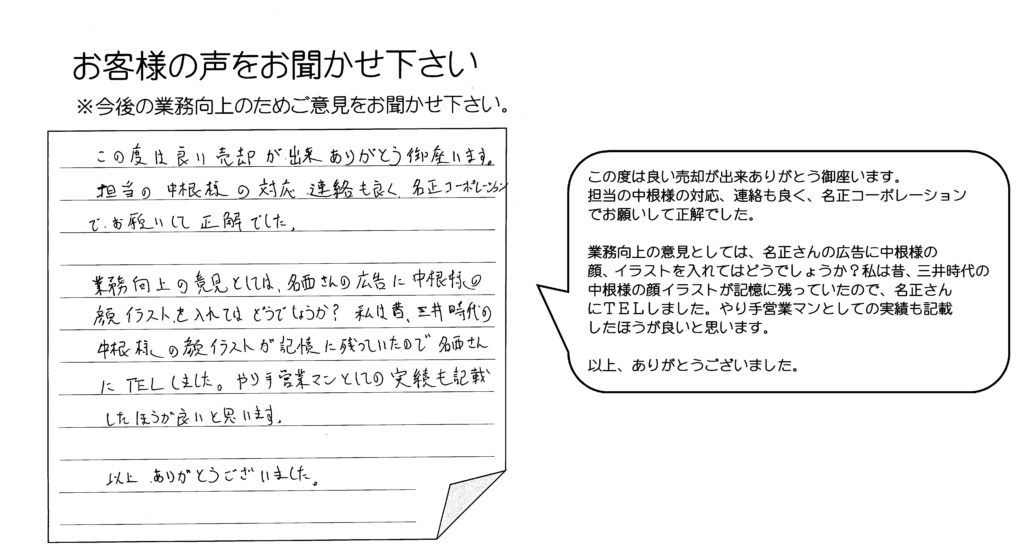 お客様の声をお聞かせ下さい
※今後の業務向上のためご意見をお聞かせ下さい。
この度は良い売却が出来ありがとう御座います。
担当の中根様の対応 連絡も良く、名正コーポレーション
で、お願いして正解でした。
業務向上の意見としては、名西さんの広告に中根様の
顔イラストを入れてはどうでしょうか? 私は昔、三井時代の
中根様の顔イラストが記憶に残っていたので名西さん
にTELしました。やり手営業マンとしての実績も記載
したほうが良いと思います。
以上 ありがとうございました。
この度は良い売却が出来ありがとう御座います。
担当の中根様の対応、連絡も良く、名正コーポレーション
でお願いして正解でした。
業務向上の意見としては、名正さんの広告に中根様の
顔、イラストを入れてはどうでしょうか?私は昔、三井時代の
中根様の顔イラストが記憶に残っていたので、名正さん
にTELしました。やり手営業マンとしての実績も記載
したほうが良いと思います。
以上、ありがとうございました。